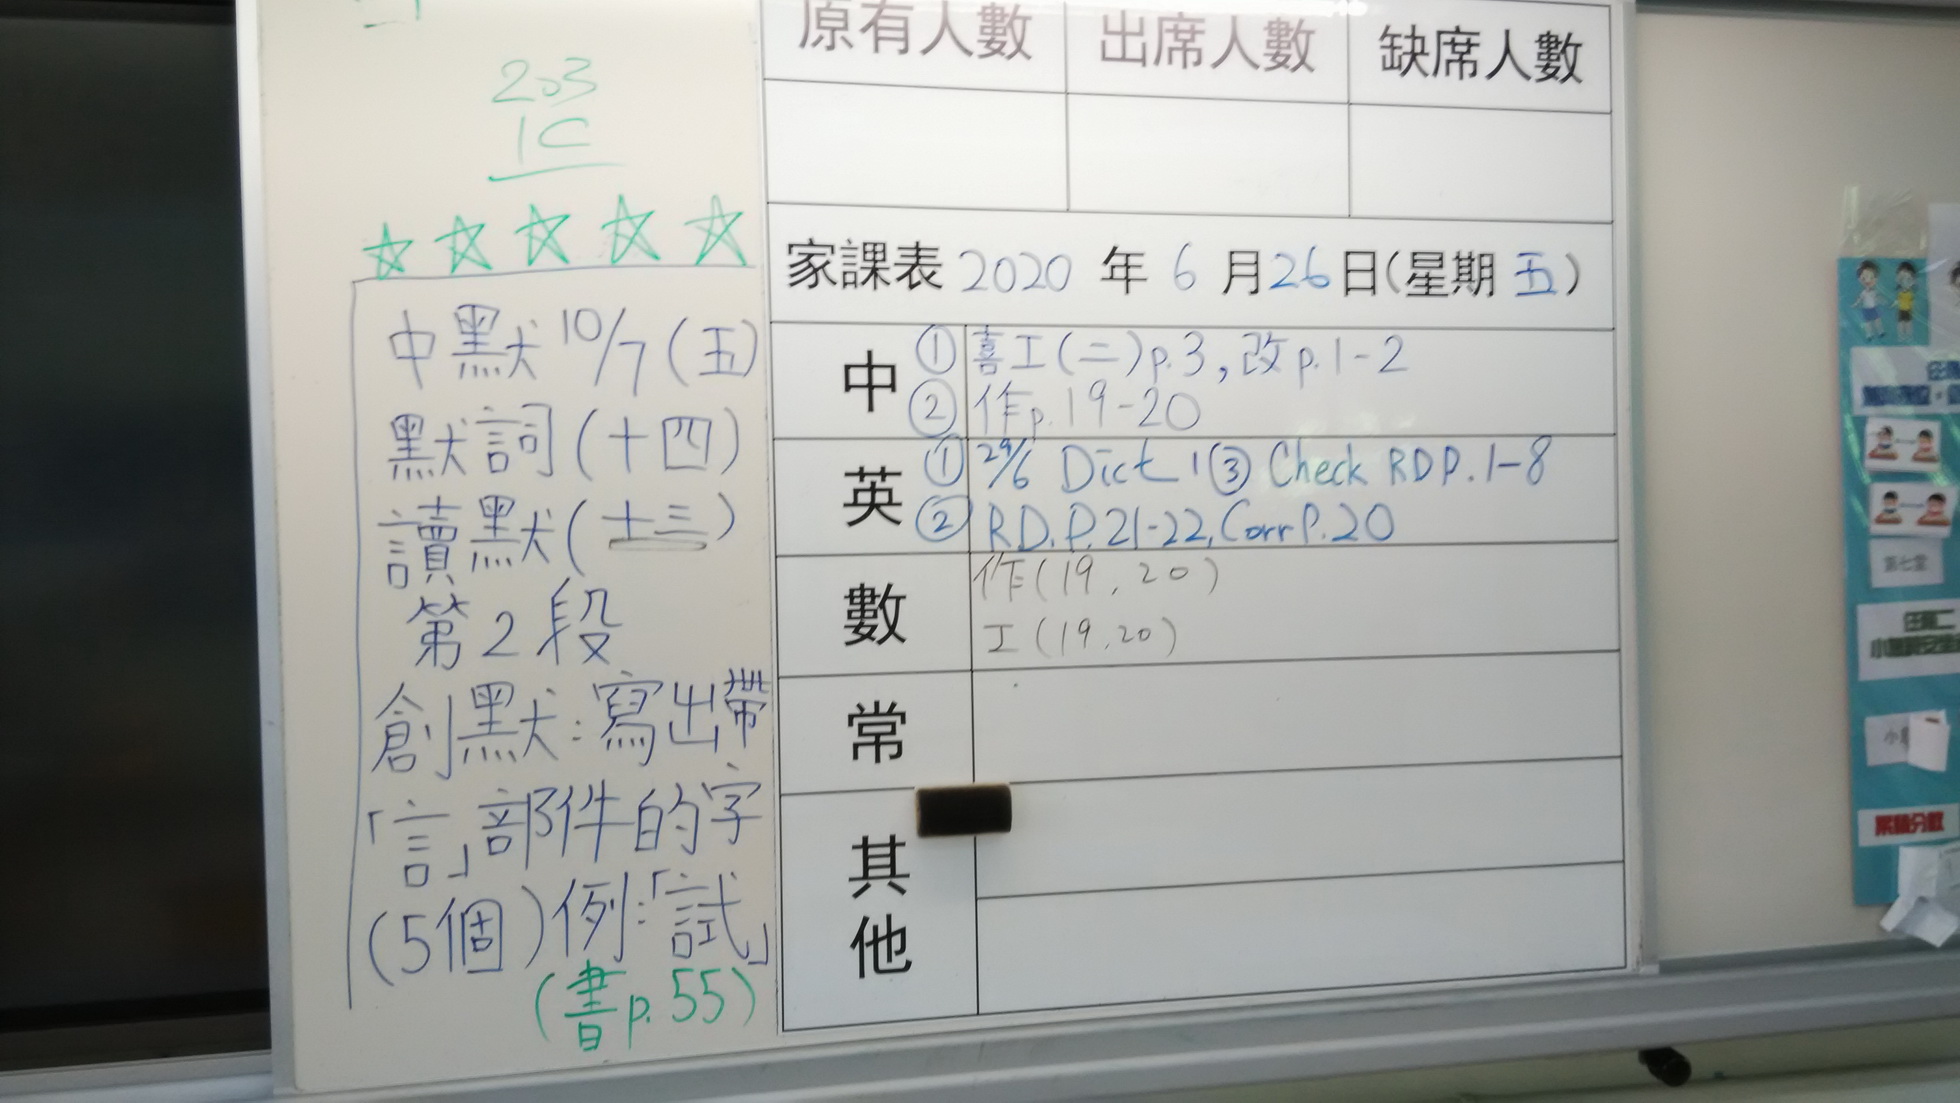 203
1C
中默 10/7 (五)
默詞(十四)
讀默(十三)
第2段
創默:寫出帶
「言」部件的字
(5個)例:「試」
(書p.55)
原有人數 出席人數 缺席人數
家課表 2020 年 6 月 26 日(星期 五)
中 ① 喜工(二)p.3,改p.1-2
② 作p.19-20
英 ① 29/6 Dict 1 ③ Check RD P.1-8
② RD.P.21-22,Corr P.20
數 作(19,20)
工(19,20)
常
其他
第七堂
任務二
累積分數